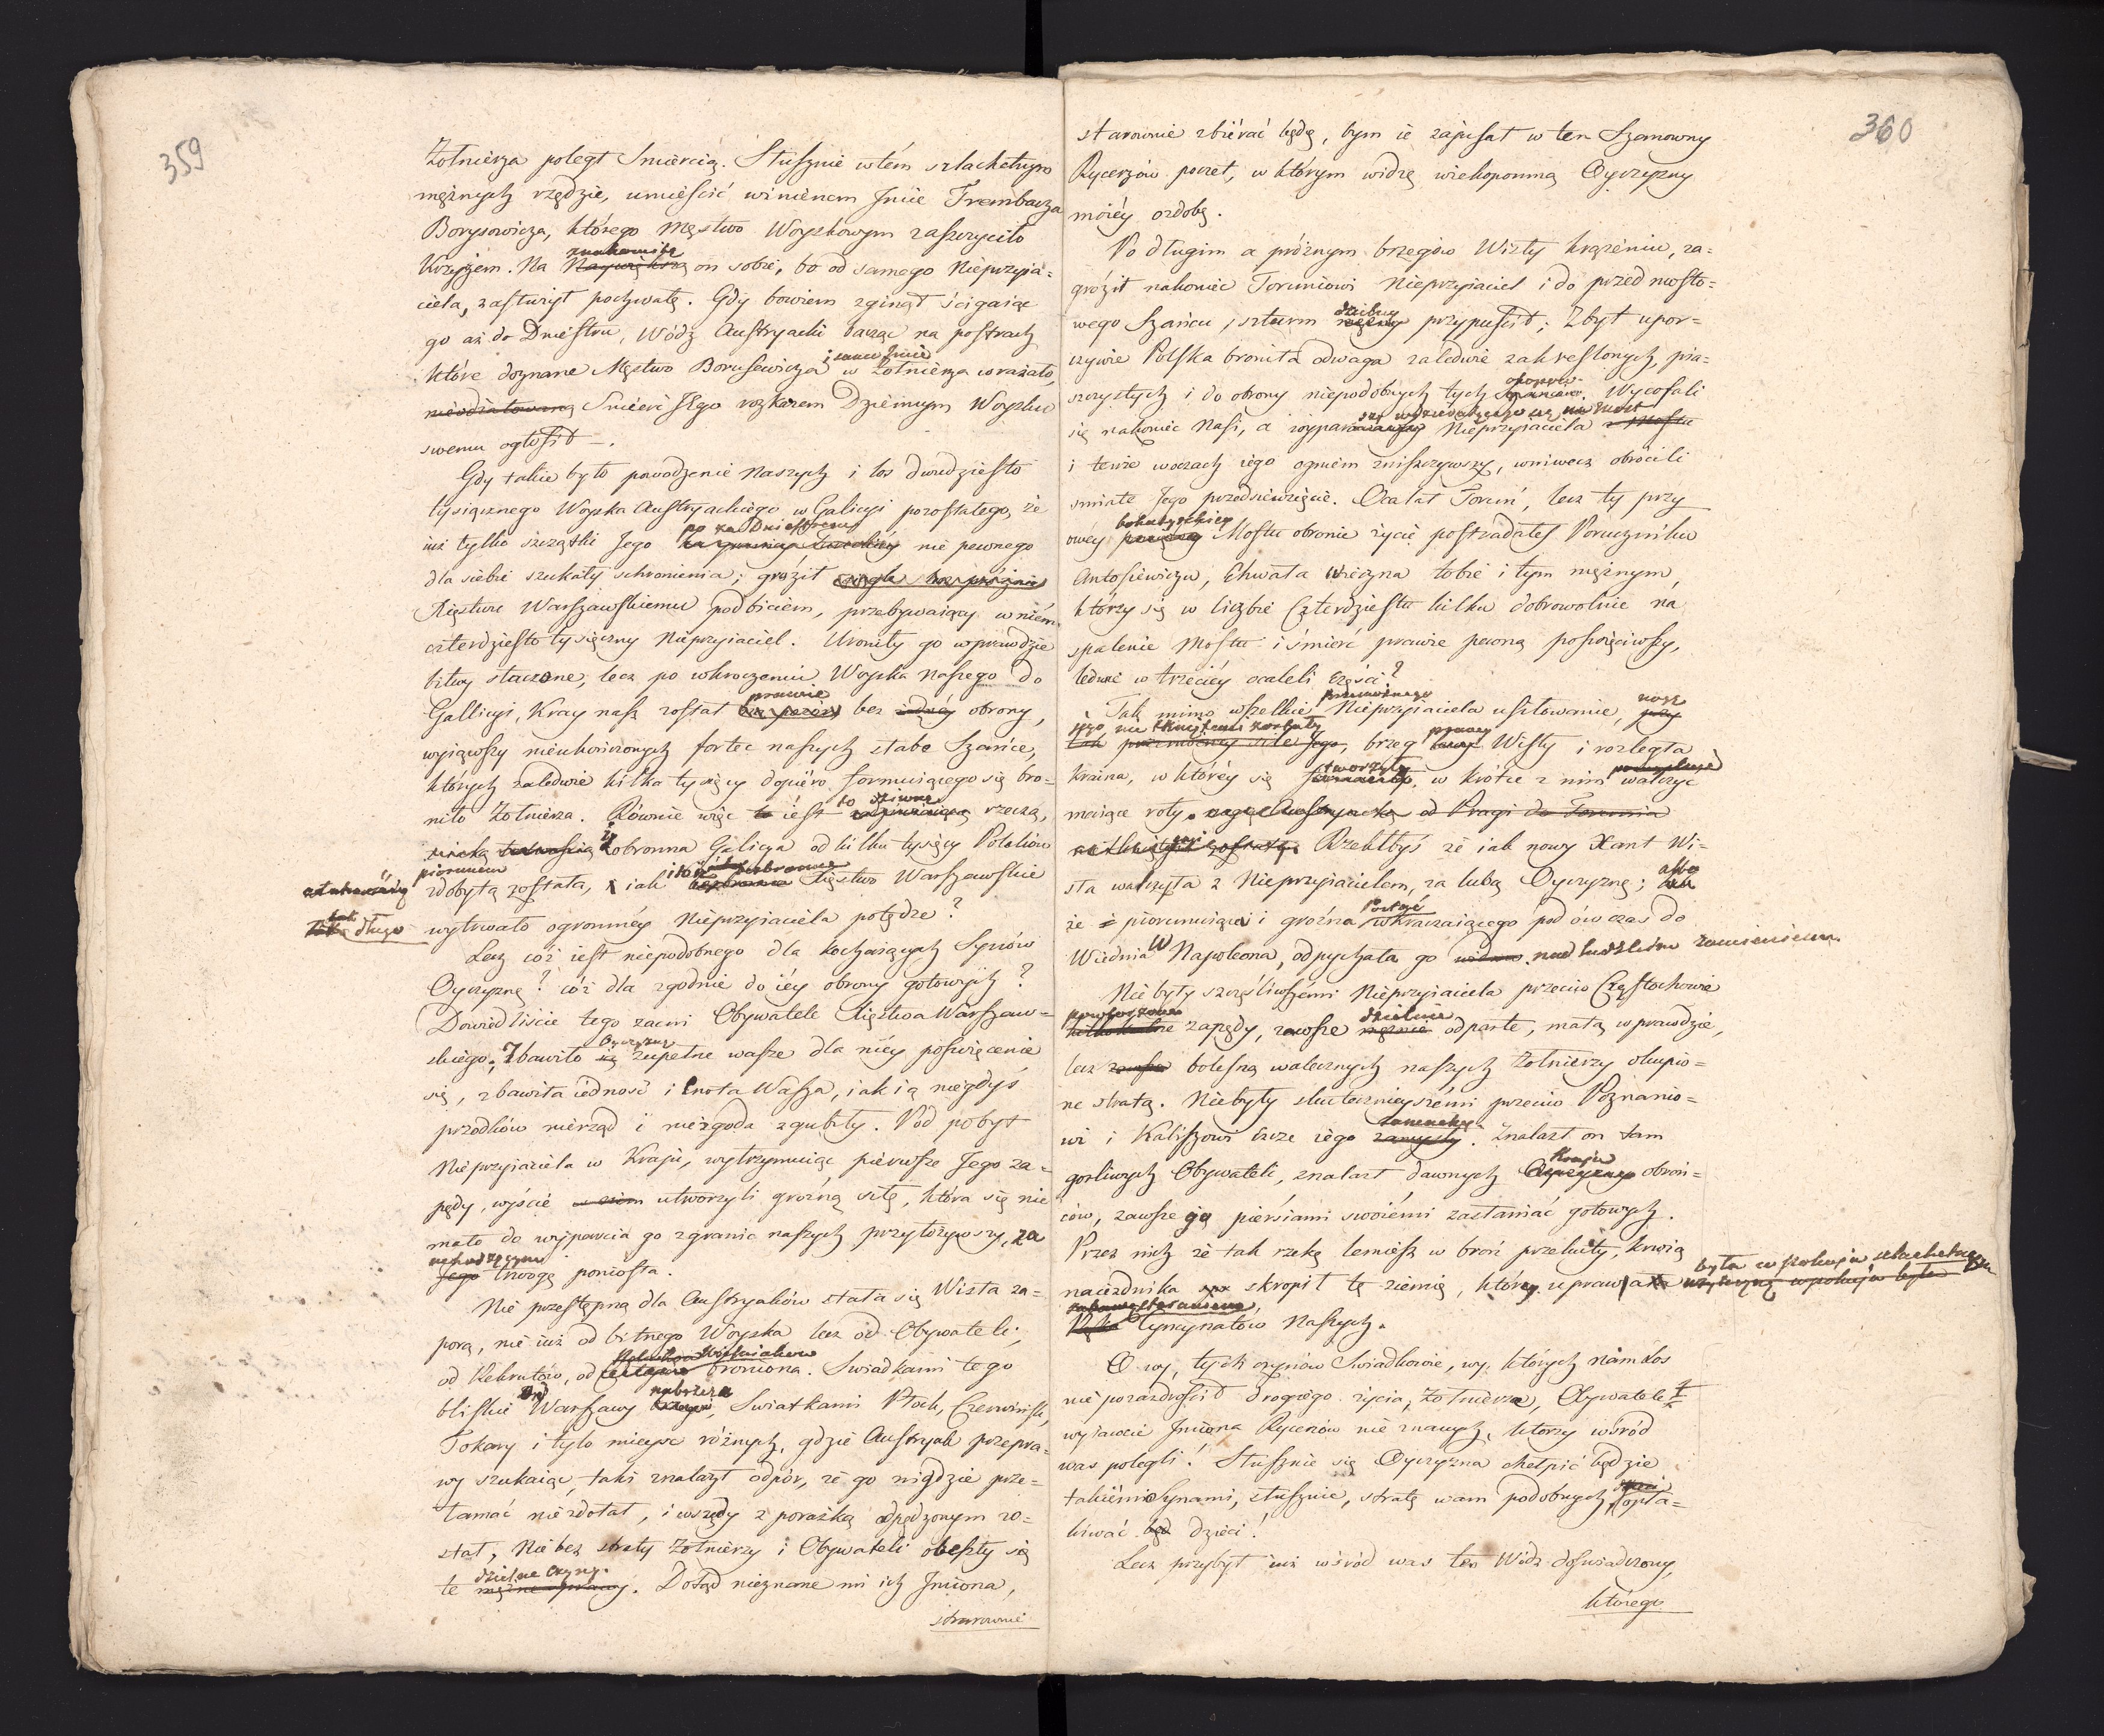 359
Żołnierza poległ Smiercią. Słusznie w tém szlachetnym
mężnych rzędzie, umieścić winienem Jmie Trembacza
Borysowicza, którego Męstwo Woyskowym zaszczyciło
znakomitą
Krzyżem. Na Naywiększą on sobie, bo od samego Nieprzyia-
ciela, zasłużył pochwałę. Gdy bowiem zginął ścigaiąc
go aż do Dniestru, Wódz Austryacki bacząc na postrach
i samo Jmie
które doznane Męstwo Borusewicza w żołnierza wrażało,
nieodżałowaną Smierć Jego rozkazem Dziennym Woysku
swemu ogłosił —.
Gdy takie było powodzenie Naszych i los dwudziesto
tysiącznego Woyska Austryackiego w Galicyi pozostałego, że
po za Dniestrem
iuż tylko szczątki Jego nie pewnego
dla siebie szukały schronienia; groził
Xięstwu Warszawskiemu podbiciem, przebywaiący w niém
czterdziesto tysięczny Nieprzyiaciel. Uroniły go wprawdzie
bitwy staczone, lecz po wkroczeniu Woyska Naszego do
prawie
Gallicyi, Kray nasz został bez żadnéy obrony,
wyiąwszy nieukończonych fortec naszych słabe Szańce,
których zaledwie kilka tysięcy dopiéro formuiącego się bro-
to dziwną
niło Żołnierza. Równie więc to iest rzeczą,
iż
obronna Galicya od kilku tysięcy Polaków
piorunem
zdobytą została, iak Xięstwo Warszawskie
tak
długo wytrwało ogromnéy Nieprzyiaciela potędze?
Lecz cóż iest niepodobnego dla kochaiących Synów
Oyczyznę? cóż dla zgodnie do iéy obrony gotowych?
Dowiedliście tego zacni Obywatele Xięstwa Warszaw-
Oyczyznę
skiego; Zbawiło ią zupełne wasze dla niéy poświęcenie
się, zbawiła iedność i Cnota Wasza, iak ią niegdyś
przodków nierząd i niezgoda zgubiły. Pod pobyt
Nieprzyiaciela w Kraju, wytrzymuiąc piérwsze Jego za-
pędy, wyście utworzyli groźną siłę, która się nie
mało do wyparcia go z granic naszych przyłożywszy, za
uchodzącym
Jego trwogę poniosła.
Nie przestępną dla Austryaków stała się Wisła za-
porą, nie iuż od bitnego Woyska lecz od Obywateli,
Wieśniaków
od Rekrutów, od broniona. Swiadkami tego
nabrzeża
bliskie Warszawy brzegi, Swiatkami Płock, Czerwińsk,
Tokary i tyle mieysc różnych, gdzie Austryak przepra-
wy szukaiąc, taki znalazł odpór, że go nigdzie prze-
łamać niezdołał, i wszędy z porażką odpędzonym zo-
stał; Nie bez straty Żołnierzy i Obywateli obeszły się
dzielne czyny.
te mężne sprawy. Dotąd nieznane mi ich Jmiona,
starownie
360
starownie zbiérać będę, bym ie zapisał w ten Szanowny
Rycerzów poczet, w którym widzę wiekopomną Oyczyzny
moiéy ozdobę.
Po długim a próżnym brzegów Wisły krążeniu, za-
groził nakoniec Toruniowi Nieprzyiaciel i do przed mosto-
dzielny
wego Szańcu, szturm przypuścił; Zbyt upor-
czywie Polska broniła odwaga zaledwie zakreslonych, pia-
okopów
szczystych i do obrony niepodobnych tych Szańców. Wycofali
się nakoniec Nasi, a Nieprzyiaciela z Mostu
i tenże w oczach iego ogniem zniszczywszy, wniwecz obrócili
smiałe Jego przedsięwzięcie. Ocalał Toruń, lecz ty przy
bohatyrskiey
owéy Mostu obronie życie postradałeś Poruczniku
Antosiewiczu, Chwała Wieczna tobie i tym mężnym,
którzy się w liczbie Czterdziestu kilku dobrowolnie na
spalenie Mostu i śmierć prawie pewną poświęciwszy,
ledwie w trzeciéy ocaleli części?
przemożnego
Tak mimo wszelkie Nieprzyiaciela usiłowanie,
prawy
brzeg lewy Wisły i rozległa
tworzyły
kraina, w któréy się w krótce z nim walczyć
maiące roty. od Pragi do Torunia
Rzekłbyś że iak nowy Xant Wi-
albo
sła walczyła z Nieprzyiacielem, za lubą Oyczyznę;
Postać
że piorunuiąca i groźna wkraczaiącego pod ów czas do
Wiednia Napoleona, odpychała go nad ludzkiém ramieniem.
Nie były szczęśliwszémi Nieprzyiaciela przeciw Częstochowie
powtórzone dzielnie
zapędy, zawsze mężnie odparte, małą wprawdzie,
lecz bolesną walecznych naszych Żołnierzy okupio-
ne stratą. Niebyły skutecznieyszémi przeciw Poznanio-
wi i Kaliszowi iego zamysły. Znalazł on tam
Kraju
gorliwych Obywateli, znalazł dawnych Oyczyzny obroń-
ców, zawsze ją piérsiami swoiémi zasłaniać gotowych.
Przez nich że tak rzekę lemiesz w broń przekuty, krwią
była w pokoju szlachetną
naiezdnika skropił tę ziemię, któréy uprawa
Cyncynatów Naszych.
O wy, tych czynów Swiadkowie, wy, których nam los
nie pozazdrościł drogiego życia, Żołnierze, Obywatele!
wyiawcie Jmiona Rycerzów nie znanych, ktorzy wśród
was polegli! Słusznie się Oyczyzna chełpić będzie
takiémi Synami, słusznie, stratę wam podobnych, opła-
kiwać dzieci!
Lecz przybył iuż wśród was ten Wódz doświadczony,
którego